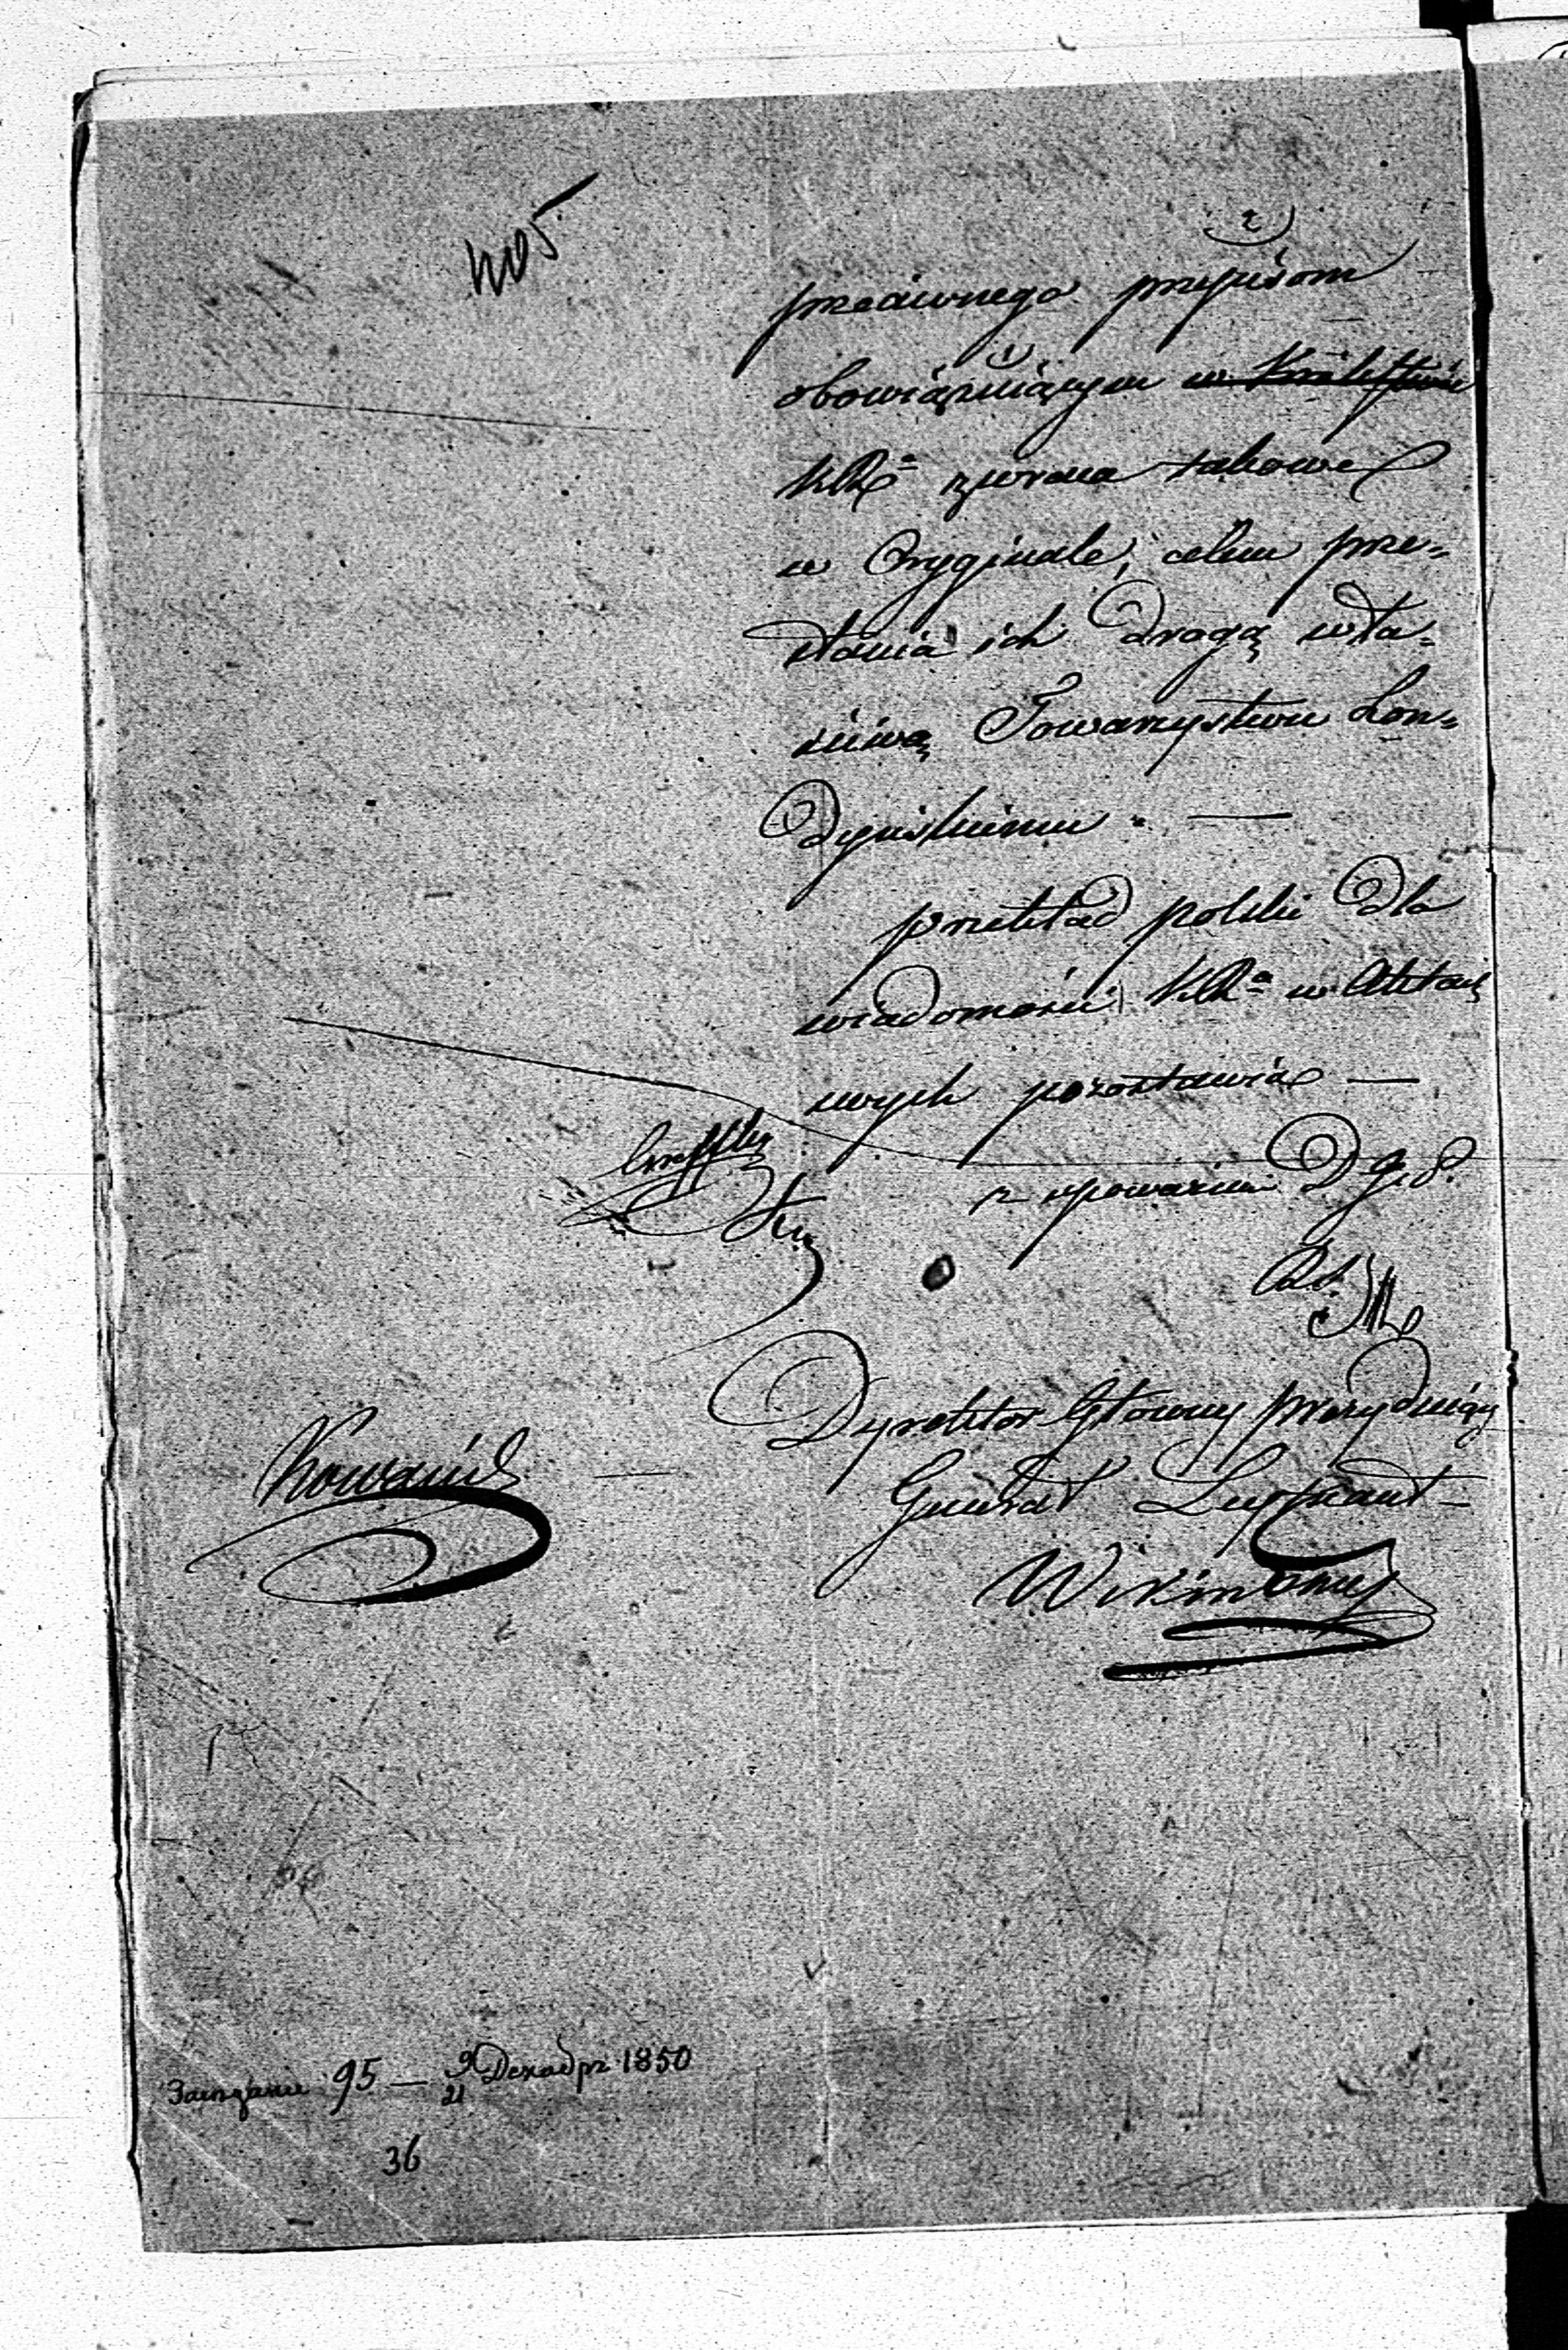 2)
przeciwnego przepisom
1)
obowiązuiącym w Królestwie
KRz^a zwraca takowe
w Oryginale, celem prze=
słania ich drogą wła=
ściwą Towarzystwu Lon=
dyńskiemu. —
przekład polski dla
wiadomości KRz^a w Aktach
swych pozostawia —
z upoważ: D G P.
Dyrektor Główny prezyduiący
Generał Leytnant
Wikiński
Kowański
Засѣданіе 95 — 9/21 Декабря 1850
36